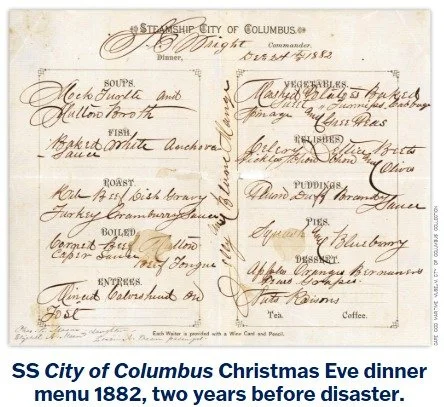 STEAMSHIP CITY OF COLUMBUS.
S. C. Wright Commander.
Dinner, Dec 24th 1882
SOUPS.
Mock Turtle and
Mutton Broth
FISH.
Baked White Anchovie
Sauce
ROAST.
Beef Dish Gravy
Turkey Cramburry Sauce
BOILED.
Corned Beef Mutton
Caper Sauce
Beef Tongue
ENTREES.
Minced Calveshead on
Tost
Jelly
VEGETABLES.
Mashed Potatoes Baked
Turnips Cabbage
Peas
RELISHES.
Celery Beets
Olives
PUDDINGS.
Plum Duff Brandy
Sauce
PIES.
Squash Blueberry
DESSERT.
Apples Oranges Bernaners
Grapes
Nuts Raisons
Tea. Coffee.
Each Waiter is provided with a Wine Card and Pencil.
CAPE COD MARITIME MUSEUM CITY OF COLUMBUS COLLECTION
SS City of Columbus Christmas Eve dinner
menu 1882, two years before disaster.